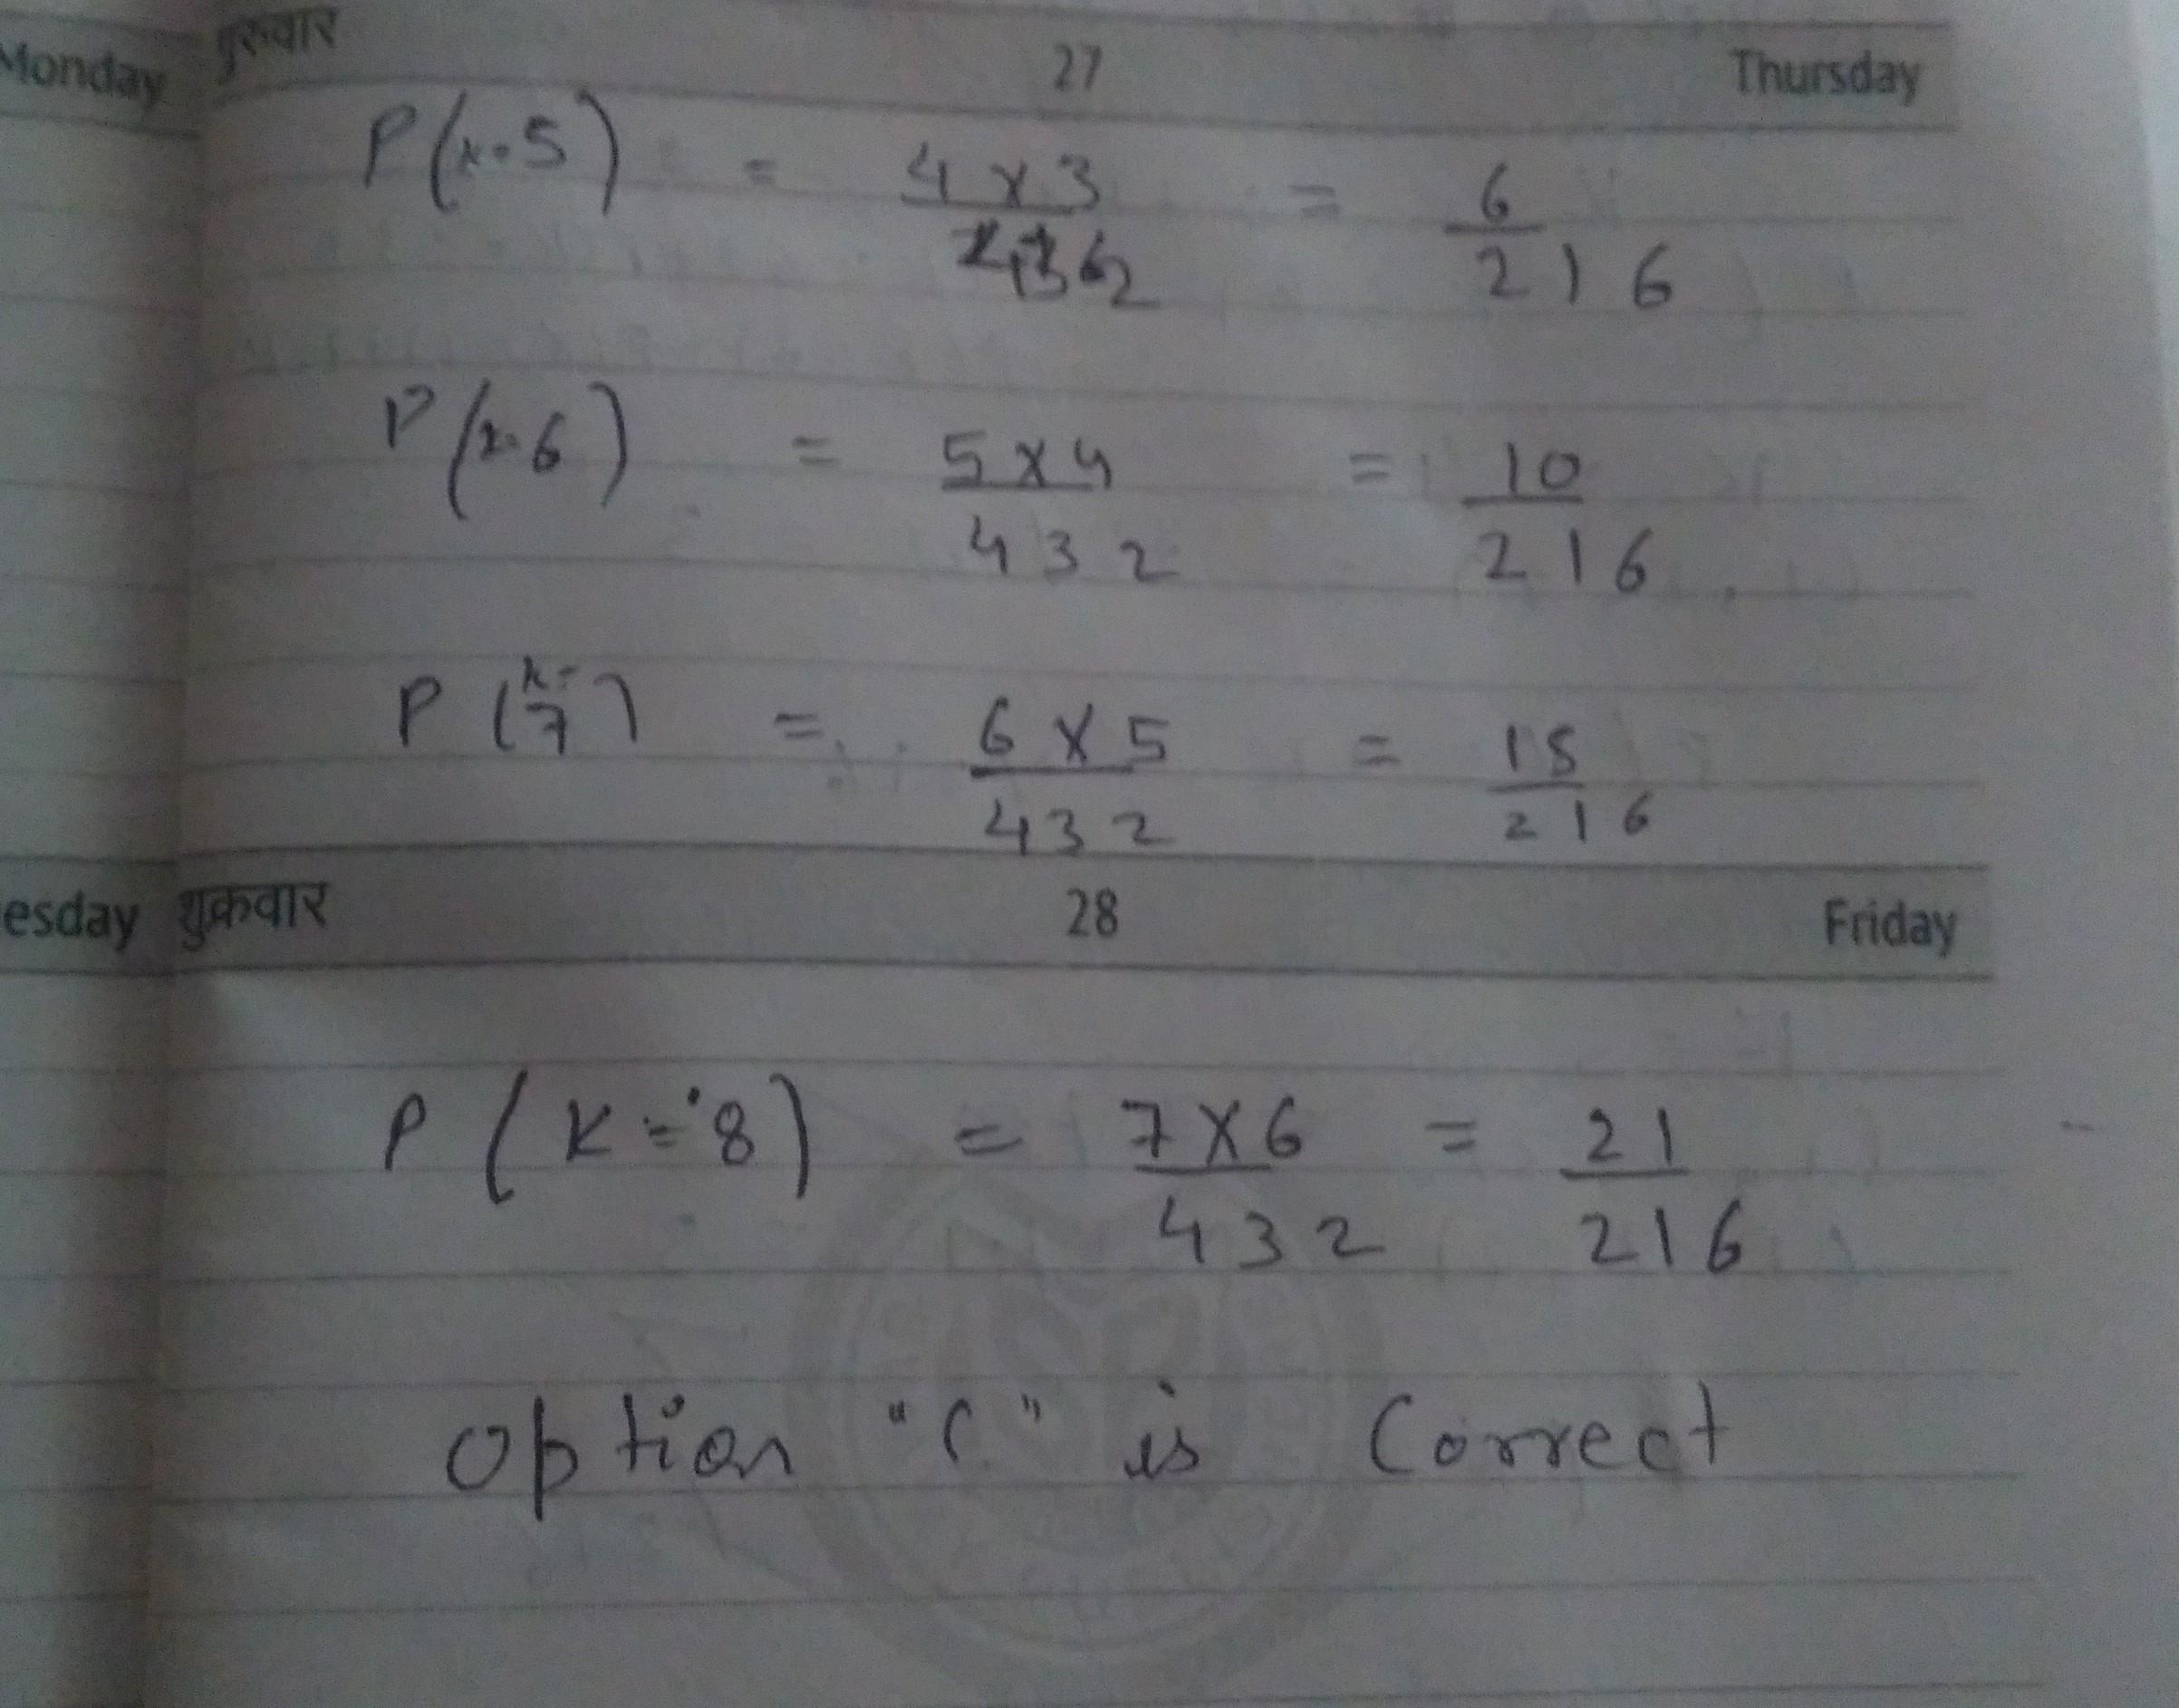 Monday गुरुवार 27 Thursday
P(k=5) = 4 x 3 / 432 = 6 / 216
P(k=6) = 5 x 4 / 432 = 10 / 216
P(k=7) = 6 x 5 / 432 = 15 / 216
esday शुक्रवार 28 Friday
P(K=8) = 7 x 6 / 432 = 21 / 216
option "C" is Correct